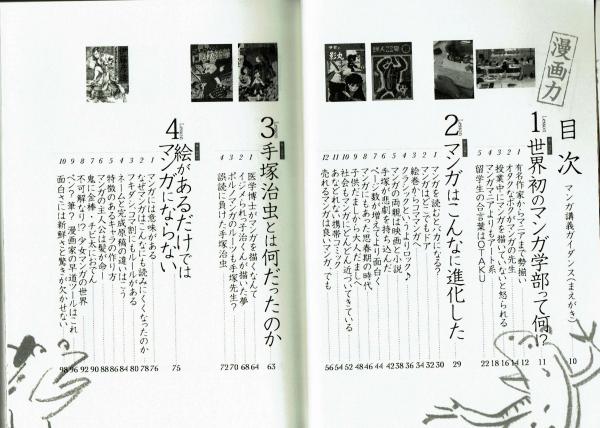 漫画力
目次
マンガ講義ガイダンス（まえがき） 10
Lesson 1 世界初のマンガ学部って何!? 11
1 有名作家からマニアまで勢揃い 12
2 オタクなボクがマンガの先生 14
3 授業中にマンガを描いていないと怒られる 16
4 マンガマニアよりもアート系 18
5 留学生の合言葉はOTAKU 22
Lesson 2 マンガはこんなに進化した 29
1 マンガを読むとバカになる? 30
2 マンガはどこでもドア 32
3 絵巻からコママンガへ 34
4 クラシックよりロック♪ 36
5 マンガの両親は映画と小説 38
6 手塚が悲劇を持ち込んだ 42
7 ページ数が増えてより面白く 44
8 マンガにもあった思春期の時代 46
9 子供だましから大人だましへ 48
10 社会もマンガにどんどん近づいている 52
11 あなどれない携帯コミック 54
12 売れるマンガは良いマンガ、でも 56
Lesson 3 手塚治虫とは何だったのか 63
1 医学博士がマンガを描くなんて 64
2 イジメられっ子治くんが描いた夢 68
3 ポルノマンガのルーツも手塚先生? 70
4 誤読に負けた手塚治虫 72
Lesson 4 絵があるだけではマンガにならない 75
1 マンガには意味がある 76
2 なぜマンガはこんなにも読みにくくなったのか 78
3 フキダシ、コマ割にもルールがある 80
4 ネームと完成原稿の違いはこう 84
5 特徴のあるキャラの作り方 86
6 マンガの主人公は髪が命! 88
7 鬼に金棒・チビ太におでん 90
8 不可解なり!? 少女マンガの世界 92
9 ペン?筆?漫画家の早道ツールはこれ 96
10 面白さには新鮮さと驚きが欠かせない 98